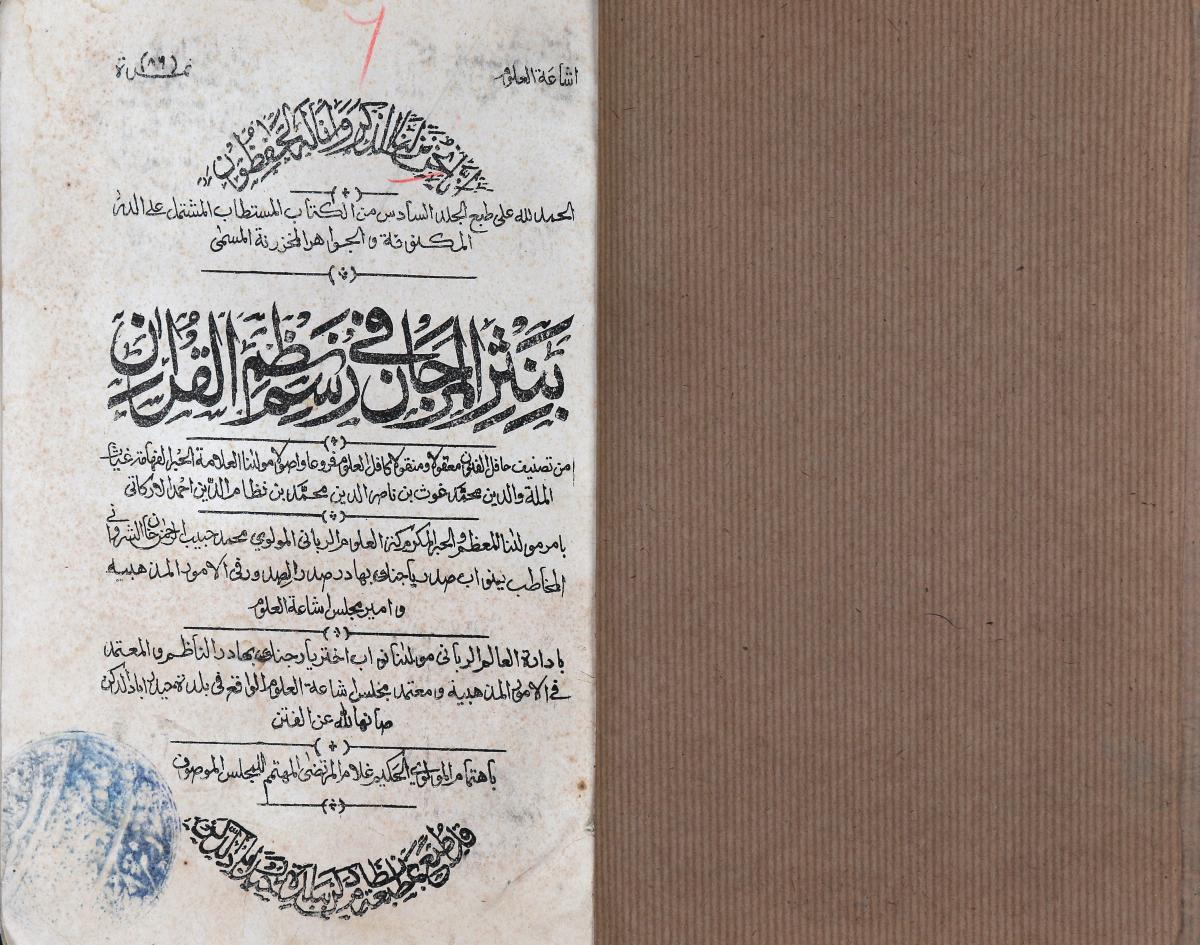 اشاعة العلوم
نمبر (٨٩)
انا نحن نزلنا الذكر وانا له لحفظون
الحمد لله على طبع الجلد السادس من الكتاب المستطاب المشتمل على الدرر
المكنونة والجواهر المخزونة المسمى
بنثر المرجان في رسم نظم القران
من تصنيف حافل الفنون معقولا ومنقولا كافل العلوم فروعا واصولا مولنا العلامة الحبر الفهامة غياث
الملة والدين محمد غوث بن ناصر الدين محمد بن نظام الدين احمد الاركاتي
بامر مولنا المعظم والحبر المكرم العلوم الرباني المولوي محمد حبيب الرحمن خان الشرواني
المخاطب بنواب صدر يار جنگ بهادر صدر الصدور في الامور المذهبية
وامير مجلس اشاعة العلوم
بادارة العالم الرباني مولنا نواب اختر يار جنگ بهادر الناظم والمعتمد
في الامور المذهبية ومعتمد مجلس اشاعة العلوم الواقع في بلدة حيدراباد الدكن
صانها الله عن الفتن
باهتمام المولوي الحكيم غلام المرتضى المهتم للمجلس الموصوف
قد طبع بمطبعة ببلدة حيدراباد الدكن